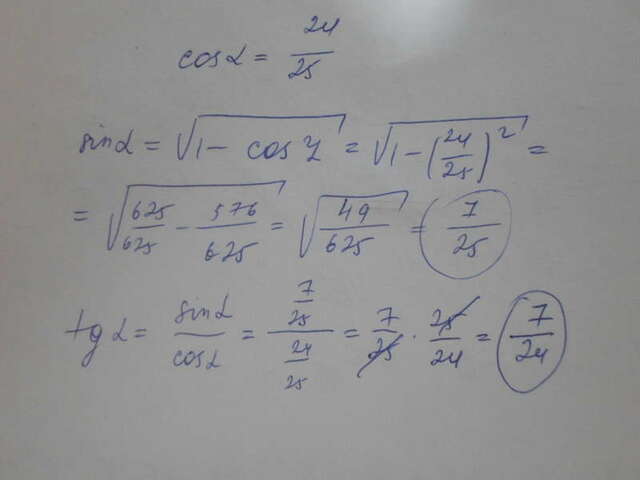 cosα = 24/25
sinα = √(1 - cos²) = √(1 - (24/25)²) =
= √(625/625 - 576/625) = √(49/625) = 7/25
tg α = sinα/cosα = (7/25)/(24/25) = 7/25 · 25/24 = 7/24